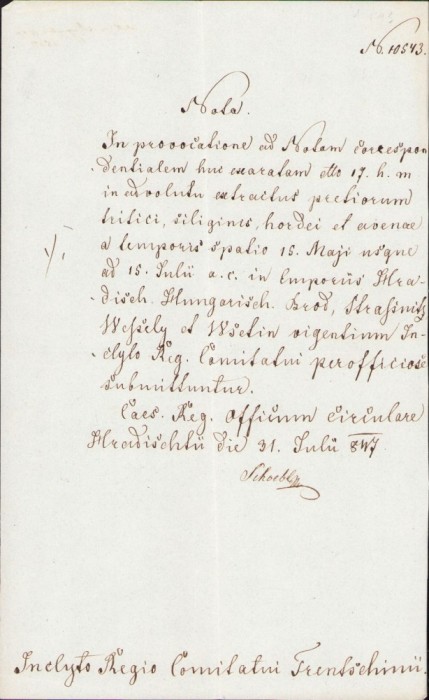 N. 10543.
Nota.
In provocatione ad Notam correspon
dentialem huc exaratam dtto 17. h. m
in advolutu extractus pretiorum
tritici, siliginis, hordei et avenae
a temporis spatio 15. Maji usque
ad 15. Julii a. c. in Emporiis Hra-
disch. Hungarisch. Brod, Strassnitz
Wessely et Wsetin vigentium In-
clyto Reg. Comitatui perofficiose
submittuntur.
Caes. Reg. Officium circulare
Hradischtii die 31. Julii 847
Inclyto Regio Comitatui Trentschinii.